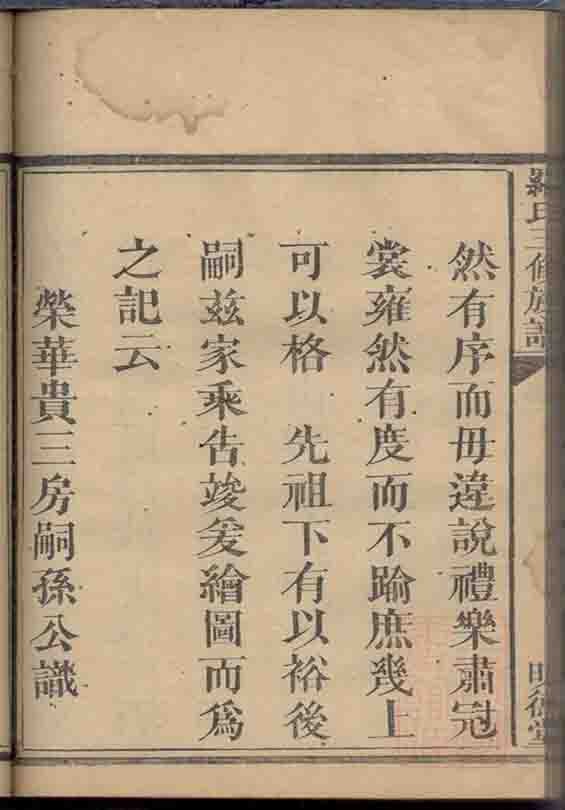 羅氏三修族譜
明德堂
然有序而毋違說禮樂肅冠
裳雍然有度而不踰庶幾上
可以格 先祖下有以裕後
嗣茲家乘告竣爰繪圖而為
之記云
榮華貴三房嗣孫公識